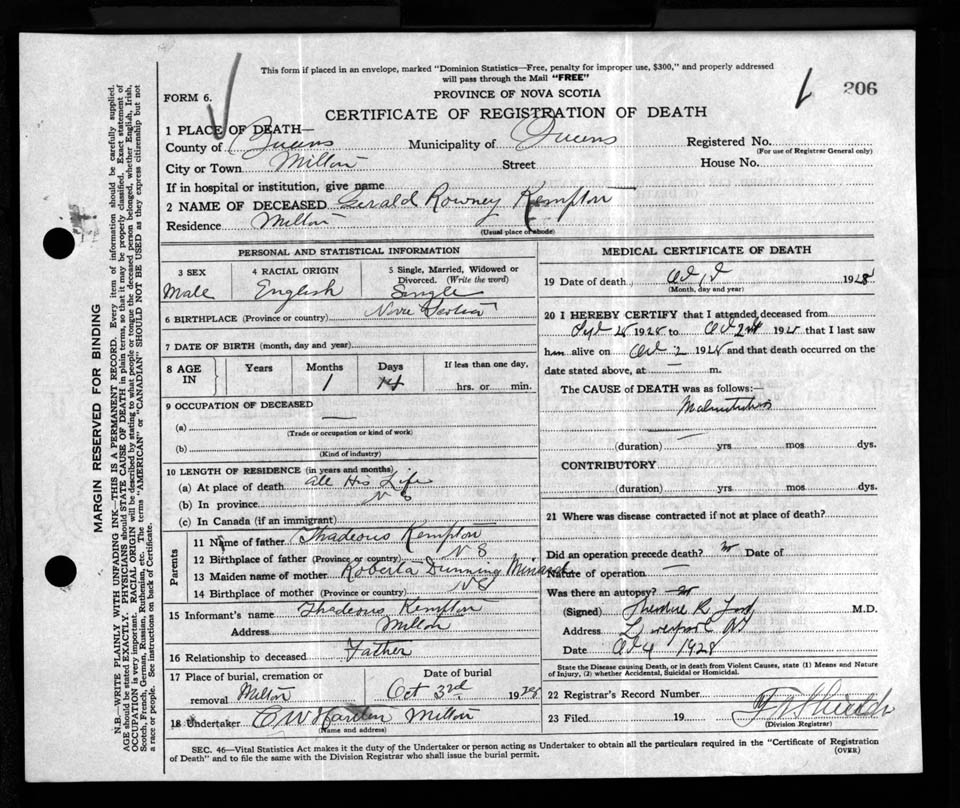 This form if placed in an envelope, marked "Dominion Statistics—Free, penalty for improper use, $300," and properly addressed
will pass through the Mail "FREE"
206
FORM 6.
PROVINCE OF NOVA SCOTIA
CERTIFICATE OF REGISTRATION OF DEATH
1 PLACE OF DEATH—
County of Queens Municipality of Queens Registered No.
(For use of Registrar General only)
City or Town Milton Street House No.
If in hospital or institution, give name
2 NAME OF DECEASED Gerald Rowney Kempton
Residence Milton
(Usual place of abode)
PERSONAL AND STATISTICAL INFORMATION
3 SEX 4 RACIAL ORIGIN 5 Single, Married, Widowed or
Divorced. (Write the word)
Male English Single
6 BIRTHPLACE (Province or country) Nova Scotia
7 DATE OF BIRTH (month, day and year)
8 AGE IN Years Months Days If less than one day,
1 14 hrs. or min.
9 OCCUPATION OF DECEASED
(a) —
(Trade or occupation or kind of work)
(b)
(Kind of industry)
10 LENGTH OF RESIDENCE (in years and months)
(a) At place of death All His Life
(b) In province N S
(c) In Canada (if an immigrant)
Parents
11 Name of father Thadeous Kempton
12 Birthplace of father (Province or country) N S
13 Maiden name of mother Roberta Dunning Minard
14 Birthplace of mother (Province or country) N S
15 Informant's name Thadeous Kempton
Address Milton
16 Relationship to deceased Father
17 Place of burial, cremation or Date of burial
removal Milton Oct 3rd 1928
18 Undertaker C W Harden Milton
(Name and address)
MEDICAL CERTIFICATE OF DEATH
19 Date of death 1928
(Month, day and year)
20 I HEREBY CERTIFY that I attended deceased from
1928 to Oct 2nd 1928 that I last saw
him alive on Oct 2 1928 and that death occurred on the
date stated above, at — m.
The CAUSE of DEATH was as follows:—
Malnutrition
(duration) — yrs mos dys.
CONTRIBUTORY
(duration) yrs mos dys.
21 Where was disease contracted if not at place of death?
Did an operation precede death? no Date of
Nature of operation —
Was there an autopsy? no
(Signed) Theodore R. Ford M.D.
Address Liverpool NS
Date Oct 4 1928
State the Disease causing Death, or in death from Violent Causes, state (1) Means and Nature
of Injury, (2) whether Accidental, Suicidal or Homicidal.
22 Registrar's Record Number
23 Filed 19
(Division Registrar)
SEC. 46—Vital Statistics Act makes it the duty of the Undertaker or person acting as Undertaker to obtain all the particulars required in the "Certificate of Registration
of Death" and to file the same with the Division Registrar who shall issue the burial permit.
(OVER)
MARGIN RESERVED FOR BINDING
N.B.—WRITE PLAINLY WITH UNFADING INK—THIS IS A PERMANENT RECORD. Every item of information should be carefully supplied.
AGE should be stated EXACTLY. PHYSICIANS should STATE CAUSE OF DEATH in plain terms, so that it may be properly classified. Exact statement of
OCCUPATION is very important. RACIAL ORIGIN will be described by stating to what people or tongue the deceased person belonged, whether English, Irish,
Scotch, French, German, Russian, Ruthenian, etc. The terms "AMERICAN" or "CANADIAN" SHOULD NOT BE USED as they express citizenship but not
a race or people. See instructions on back of Certificate.